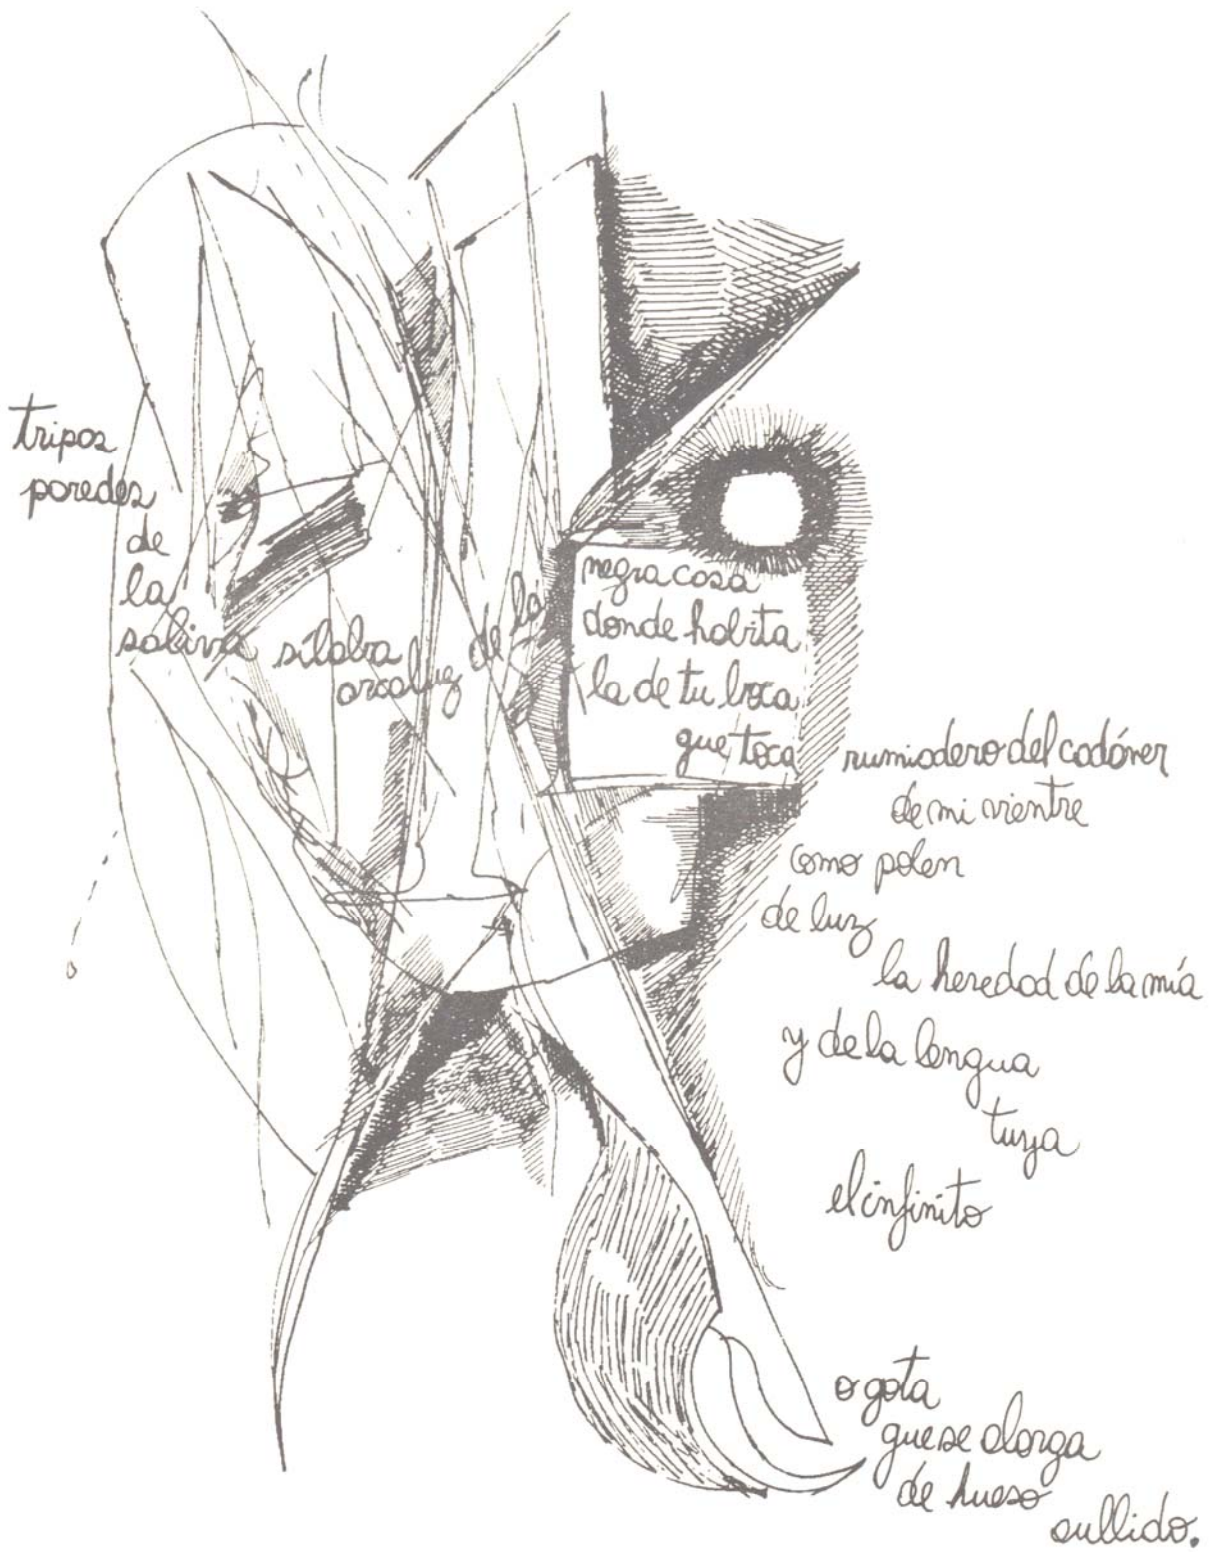 tripas
paredes
de
la
saliva
sílaba
de la
negra casa
donde habita
la de tu boca
que toca
rumiadero del cadáver
de mi vientre
como polen
de luz
la heredad de la mía
y de la lengua
tuya
el infinito
o gota
que se alarga
de hueso
aullido.